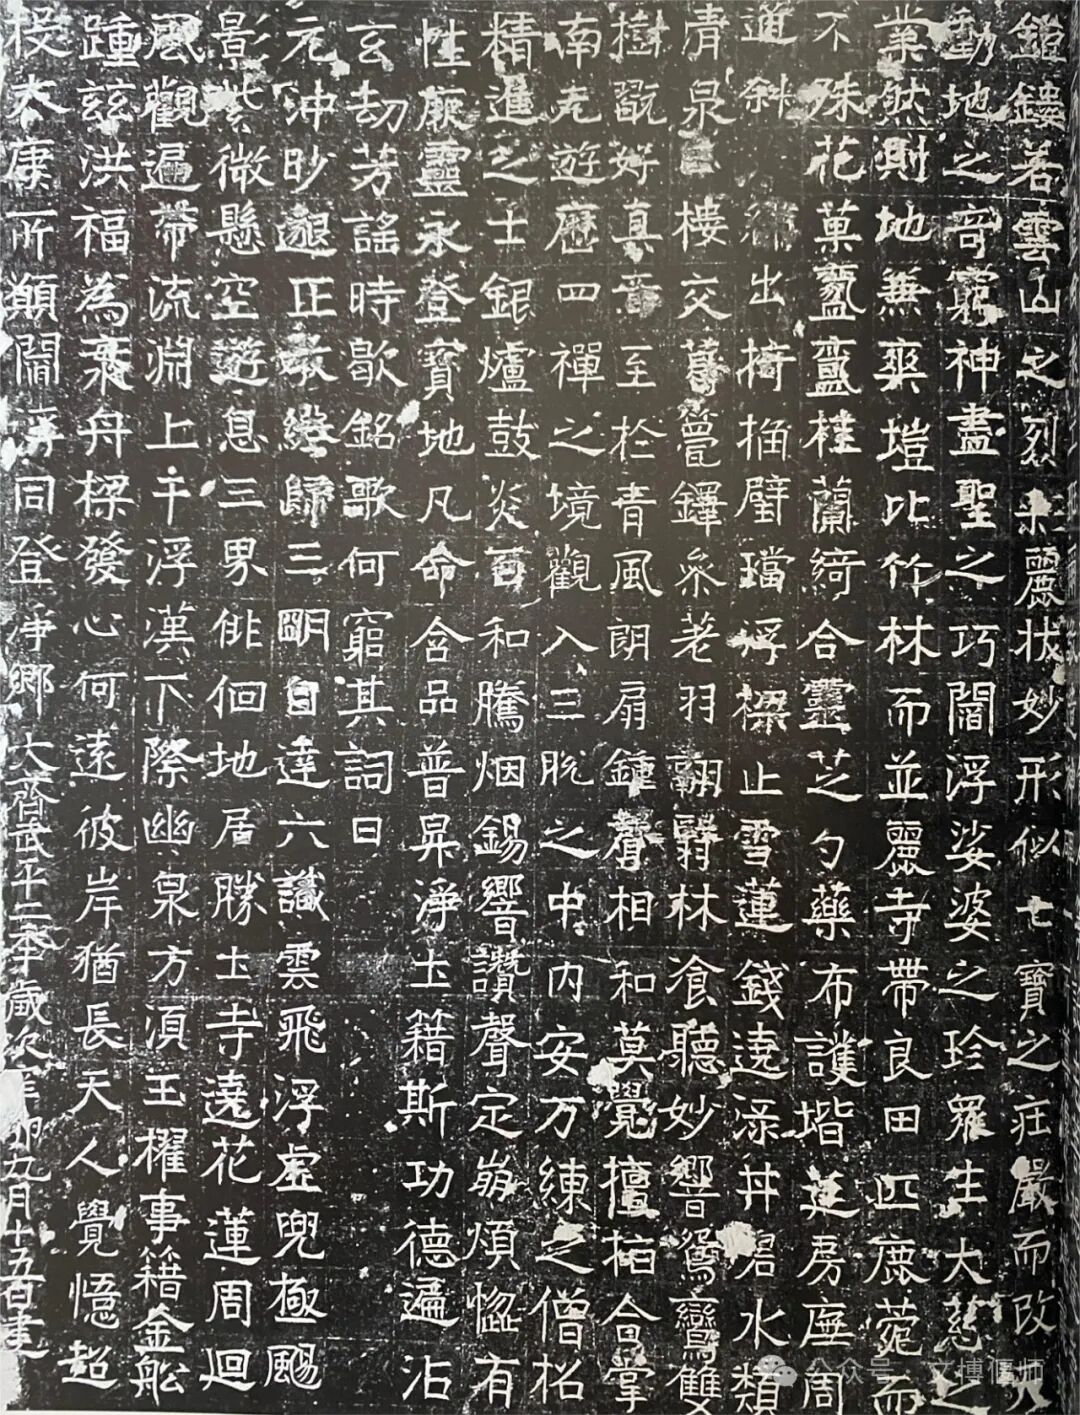 鏤若雲山之烈麗状妙形似七寶之庄嚴而改
動地之奇窮神盡聖之巧閻浮娑婆之珍羅生大慈之
業然則地無爽塏比竹林而並麗寺帶良田匹鹿菀而
不殊花菓蔓桂蘭綺合靈芝勺藥布護堦迬房廡周
道斜出掎桷璧璫浮樑止雪蓮錢遶添丼沼水類
清泉樓交甍鐸炙老羽翮翳林飡聽妙響鴛鸞雙
樹翫好真音至於青風朗扇鍾聲相和莫覺檀栢合掌
南先遊歷四禪之境觀入三脫之中内安万練之僧招
精進之士銀爐鼓炎百和騰烟錫響讚聲定崩煩惱有
性厥靈永登寶地凡命含品普昇淨土籍斯功德遍沾
玄劫芳謠時歇銘歌何窮其詞曰
元沖眇邈正教歸三明自達六識雲飛浮虛兜極颺
影紫微懸空遊息三界俳佪地居勝土寺遶花蓮周迴
風觀遍帶流淵上干浮漢下際幽泉方須王櫂事籍金舩
踵茲洪福為舟樑發心何遠彼岸猶長天人覺憶超
役太康所願闇浮同登淨鄉 大齊武平二年歲次辛卯九月十五日建
公众号·文博偃师